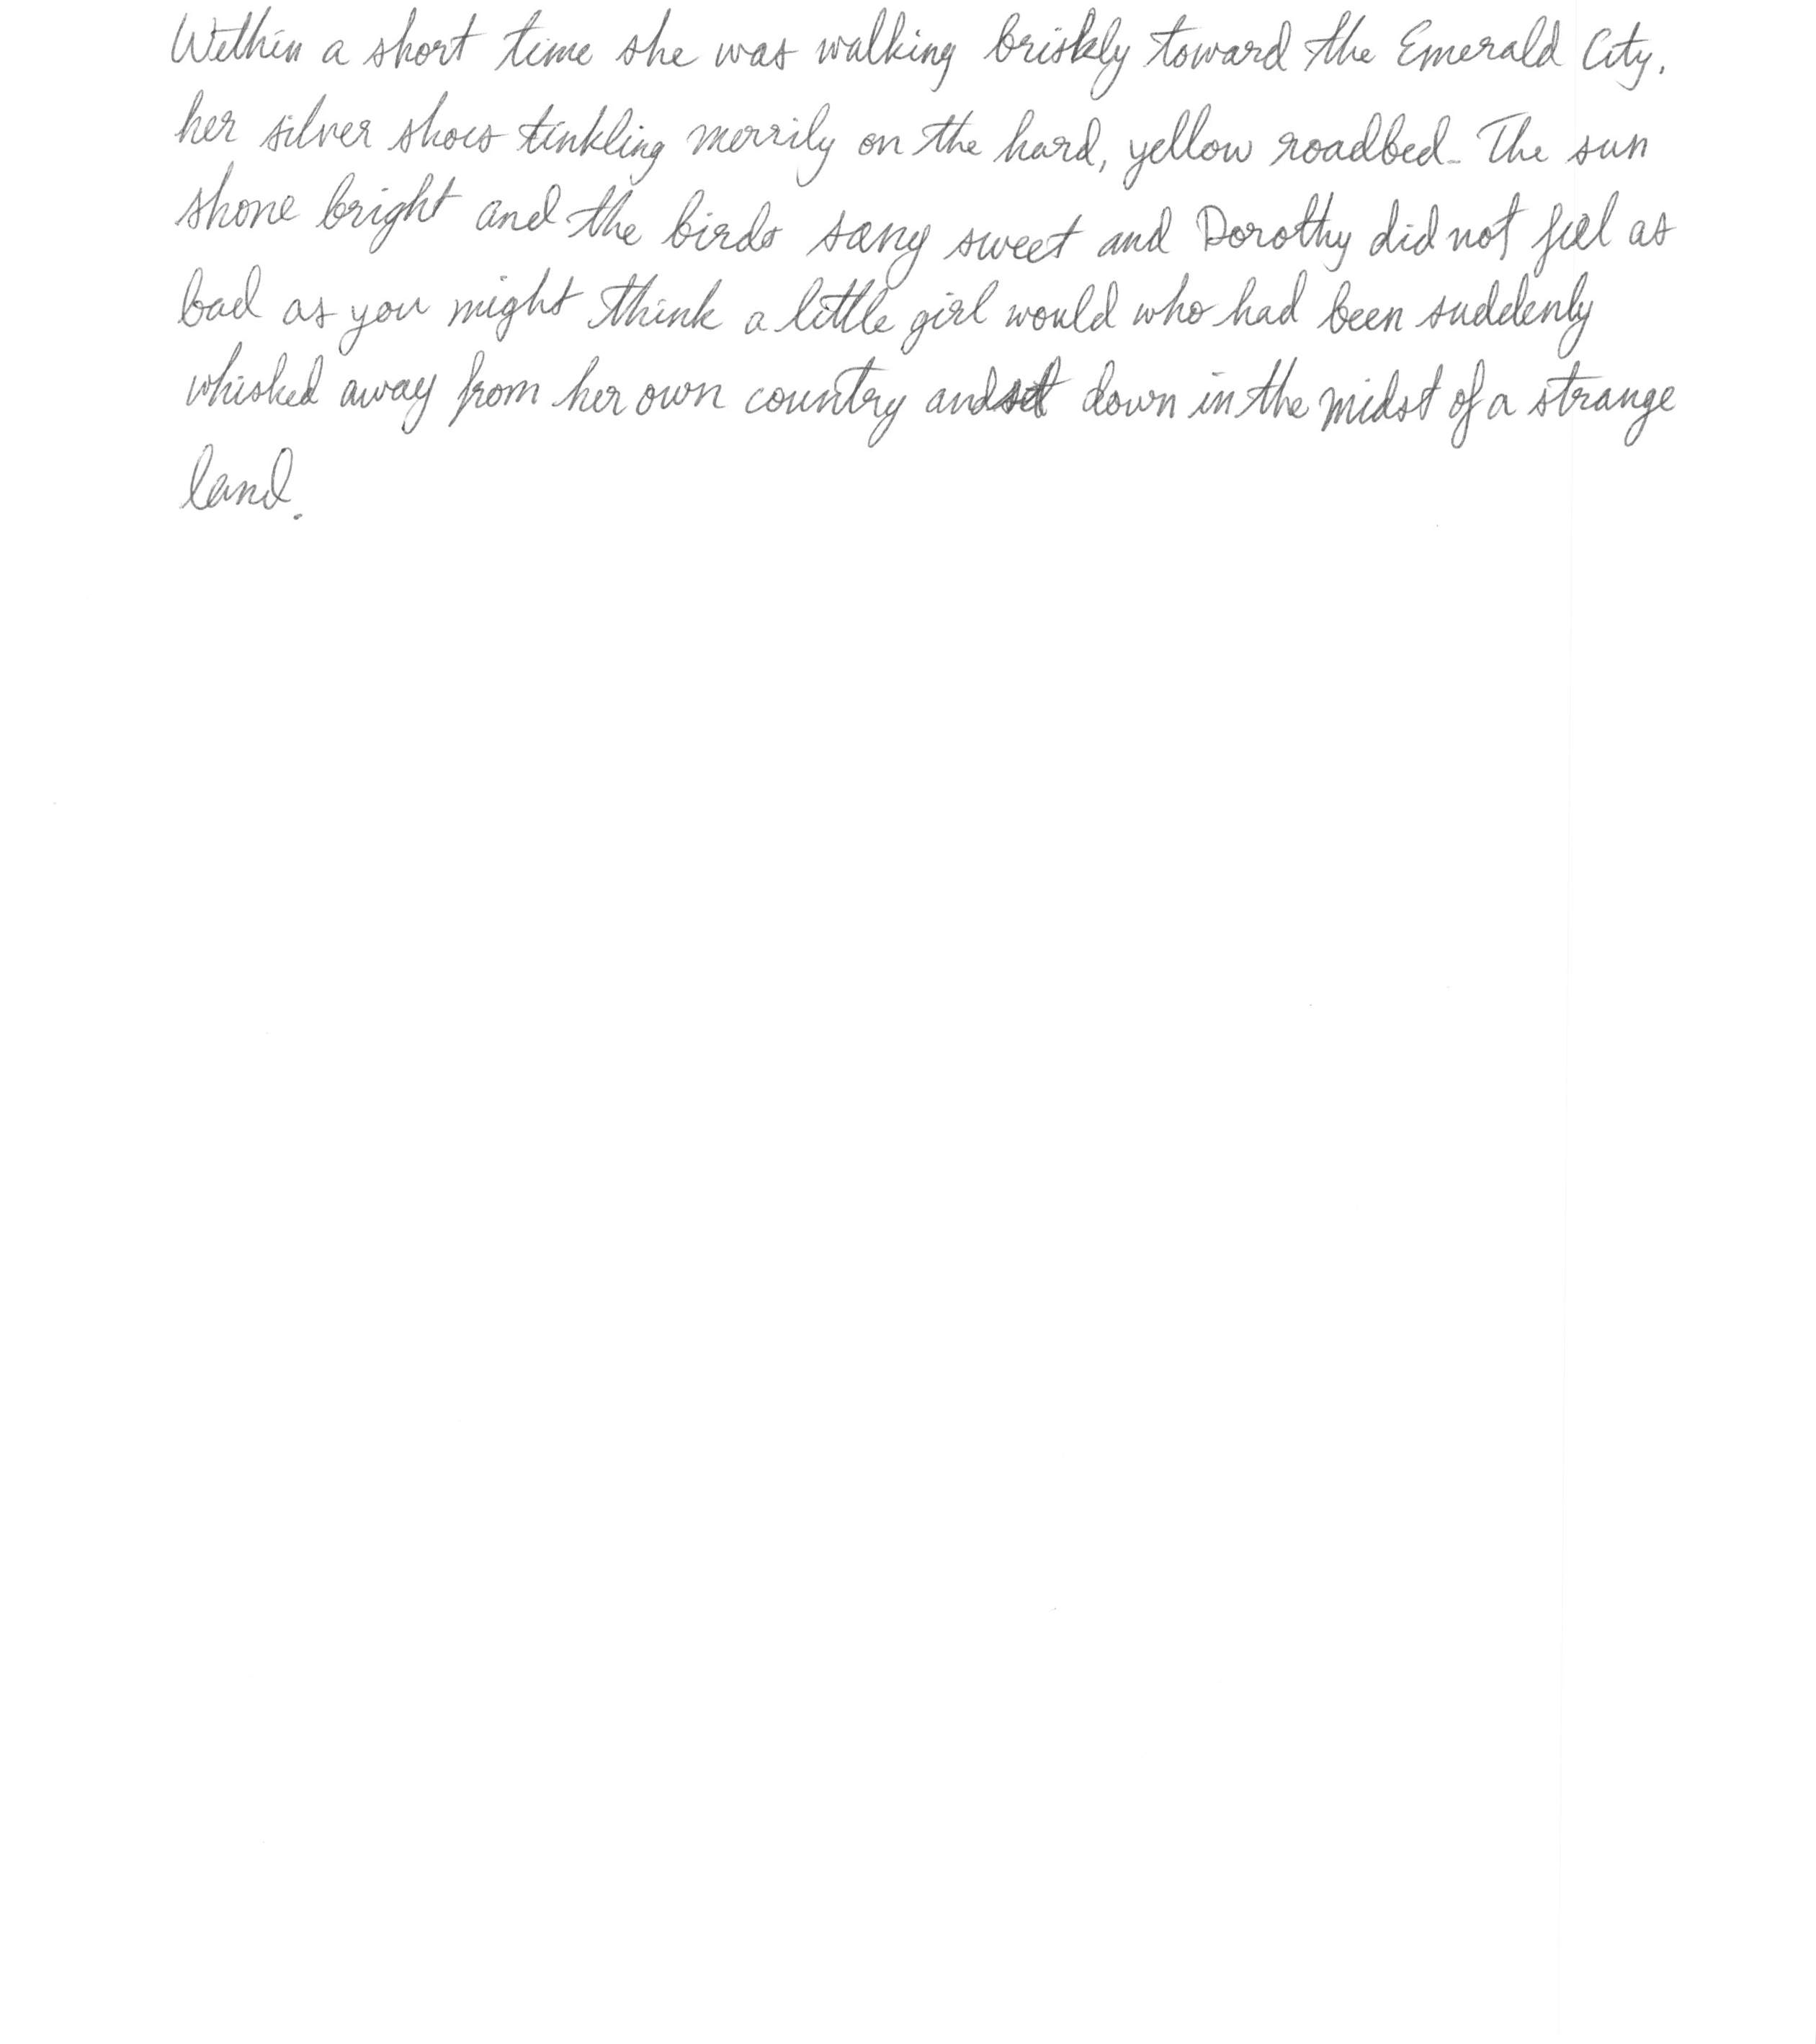 Within a short time she was walking briskly toward the Emerald City,
her silver shoes tinkling merrily on the hard, yellow roadbed. The sun
shone bright and the birds sang sweet and Dorothy did not feel as
bad as you might think a little girl would who had been suddenly
whisked away from her own country and set down in the midst of a strange
land.